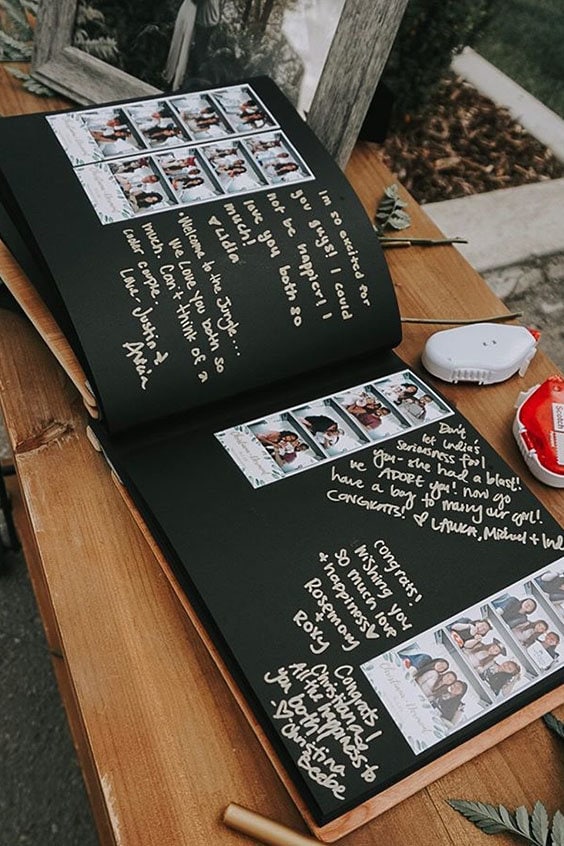 I'm so excited for
you guys! I could
not be happier! I
love you both so
much!
♡ Lidia
"Welcome to the Jungle...
We Love you both so
much. Can't think of a
cooler couple.
Love Justin &
Don't
let India's
Seriousness fool
you - she had a blast!
We ADORE you! now go
have a boy to marry our girl!
CONGRATS! ♡ LAURA, Michael + Ind
congrats!
wishing you
so much love
+ happiness ♡
Rosemary
+
Roxy
Congrats
All the happiness to
you both!
♡ Christina
Beebe
Scotch